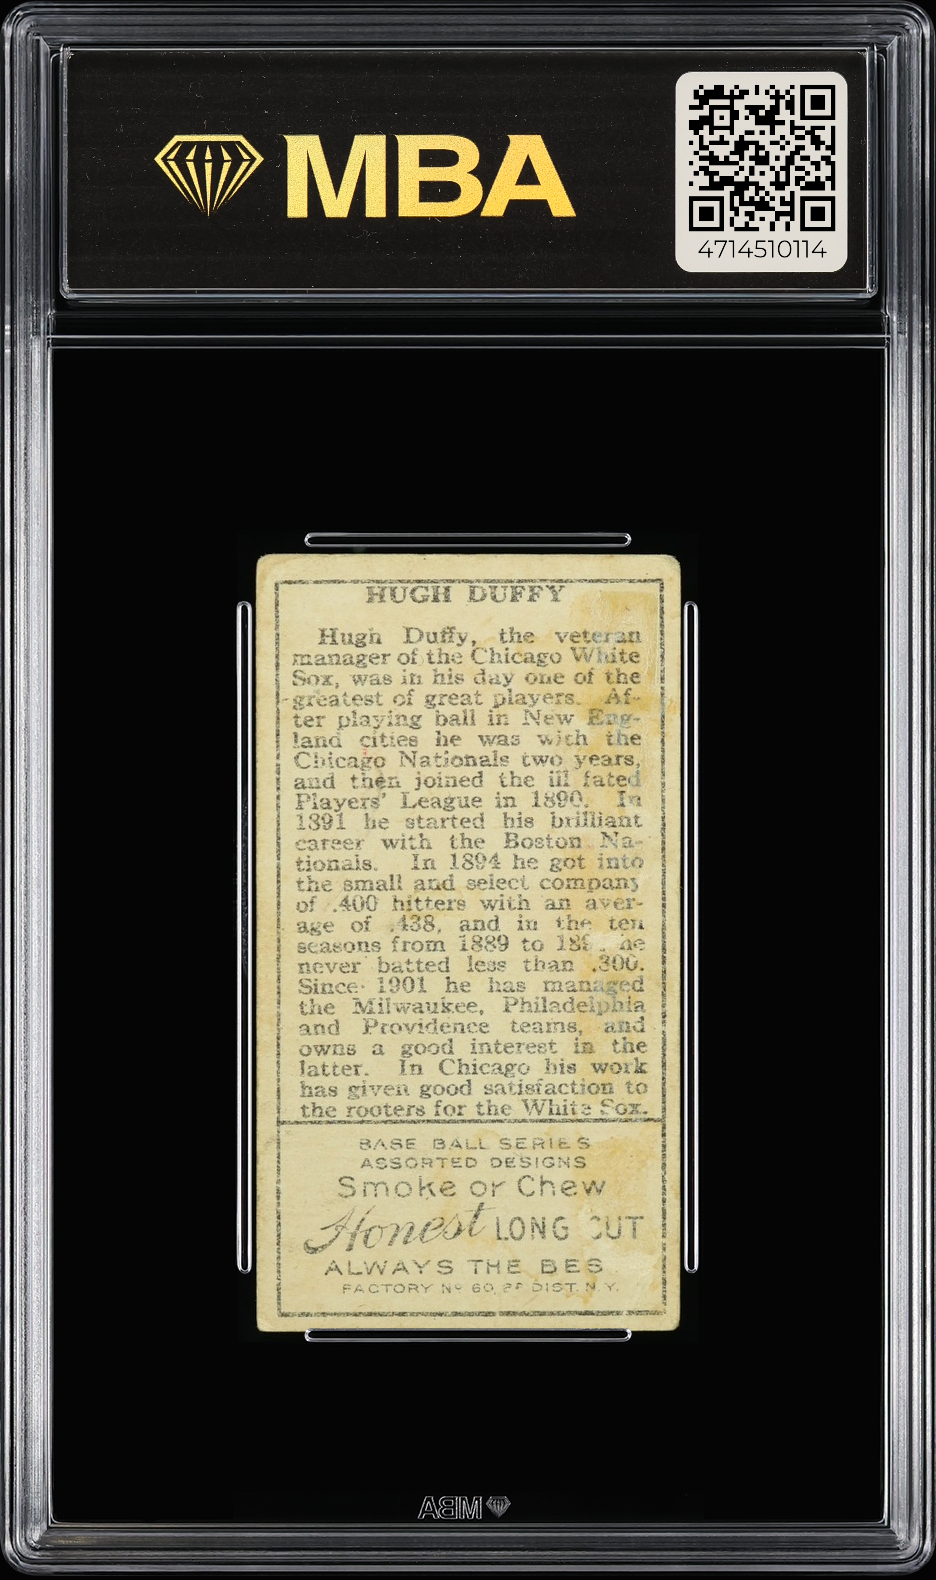 MBA
4714510114
HUGH DUFFY
Hugh Duffy, the veteran
manager of the Chicago White
Sox, was in his day one of the
greatest of great players. Af-
ter playing ball in New Eng-
land cities he was with the
Chicago Nationals two years,
and then joined the ill fated
Players' League in 1890. In
1891 he started his brilliant
career with the Boston Na-
tionals. In 1894 he got into
the small and select company
of .400 hitters with an aver-
age of .438, and in the ten
seasons from 1889 to he
never batted less than .300.
Since 1901 he has managed
the Milwaukee, Philadelphia
and Providence teams, and
owns a good interest in the
latter. In Chicago his work
has given good satisfaction to
the rooters for the White Sox.
BASE BALL SERIES
ASSORTED DESIGNS
Smoke or Chew
Honest LONG CUT
ALWAYS THE BES
FACTORY No 60, DIST. N.Y.
MBA